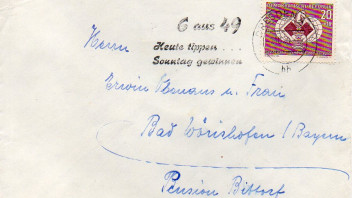 6 aus 49
Heute tippen . . .
Sonntag gewinnen
20
Herrn
Erwin u. Frau
Bad Wörishofen / Bayern
Pension Bittorf